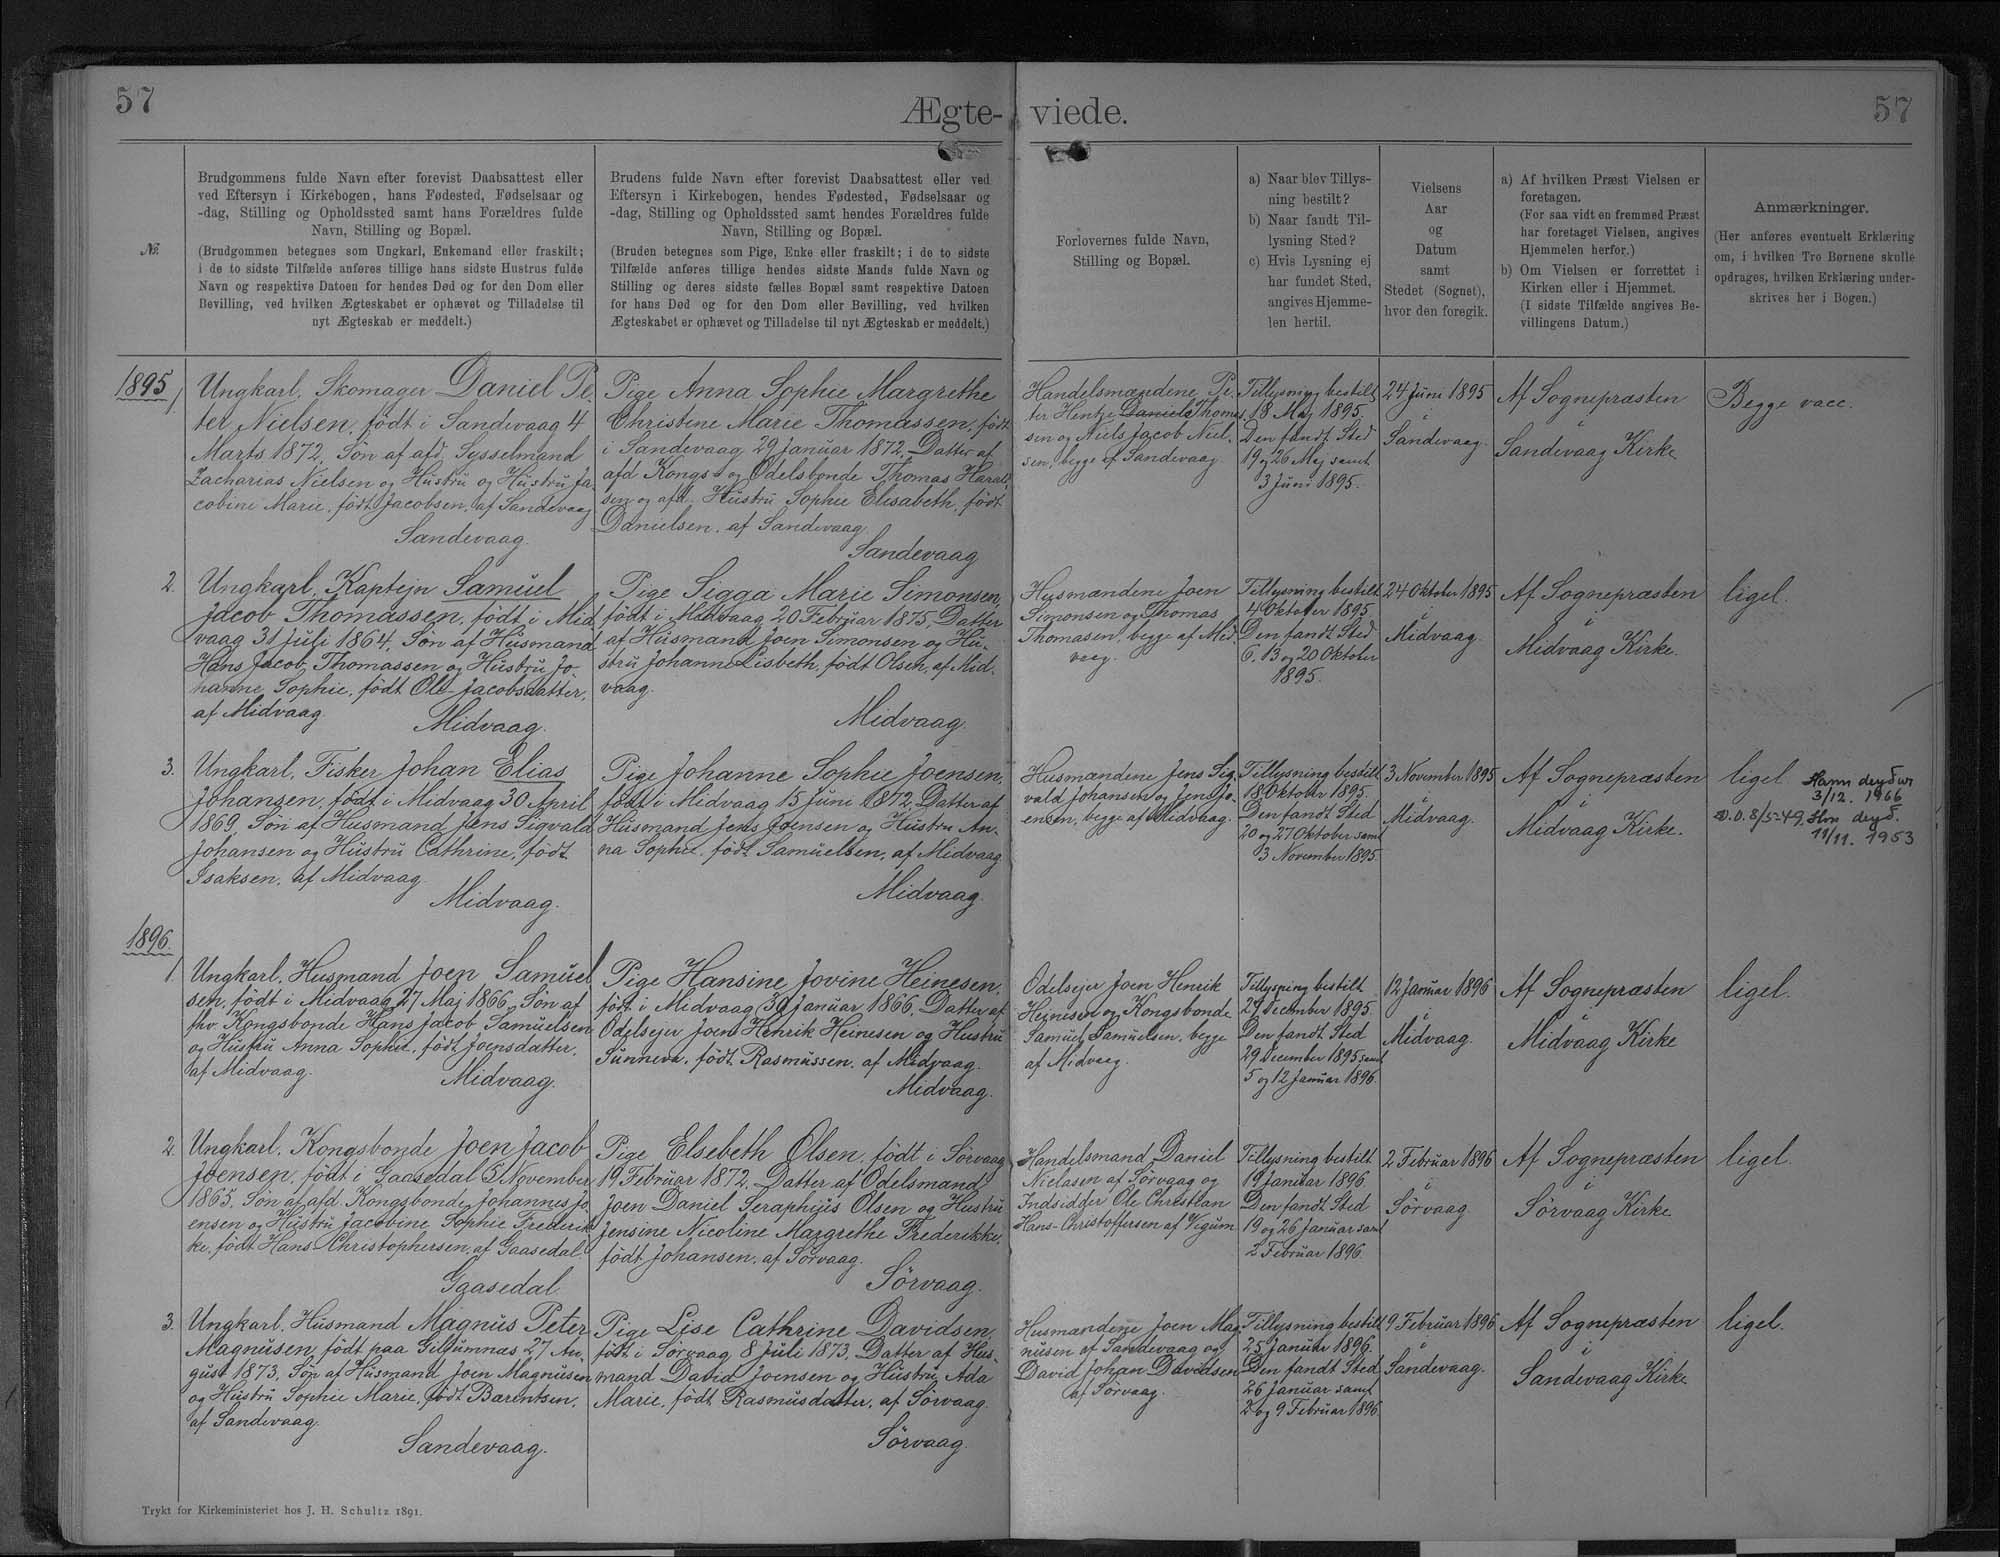 57
Ægte- viede.
57
№
Brudgommens fulde Navn efter forevist Daabsattest eller
ved Eftersyn i Kirkebogen, hans Fødested, Fødselsaar og
-dag, Stilling og Opholdssted samt hans Forældres fulde
Navn, Stilling og Bopæl.
(Brudgommen betegnes som Ungkarl, Enkemand eller fraskilt;
i de to sidste Tilfælde anføres tillige hans sidste Hustrus fulde
Navn og respektive Datoen for hendes Død og for den Dom eller
Bevilling, ved hvilken Ægteskabet er ophævet og Tilladelse til
nyt Ægteskab er meddelt.)
Brudens fulde Navn efter forevist Daabsattest eller ved
Eftersyn i Kirkebogen, hendes Fødested, Fødselsaar og
-dag, Stilling og Opholdssted samt hendes Forældres fulde
Navn, Stilling og Bopæl.
(Bruden betegnes som Pige, Enke eller fraskilt; i de to sidste
Tilfælde anføres tillige hendes sidste Mands fulde Navn og
Stilling og deres sidste fælles Bopæl samt respektive Datoen
for hans Død og for den Dom eller Bevilling, ved hvilken
Ægteskabet er ophævet og Tilladelse til nyt Ægteskab er meddelt.)
Forlovernes fulde Navn,
Stilling og Bopæl.
a) Naar blev Tillys-
ning bestilt?
b) Naar fandt Til-
lysning Sted?
c) Hvis Lysning ej
har fundet Sted,
angives Hjemme-
len hertil.
Vielsens
Aar
og
Datum
samt
Stedet (Sognet),
hvor den foregik.
a) Af hvilken Præst Vielsen er
foretagen.
(For saa vidt en fremmed Præst
har foretaget Vielsen, angives
Hjemmelen herfor.)
b) Om Vielsen er forrettet i
Kirken eller i Hjemmet.
(I sidste Tilfælde angives Be-
villingens Datum.)
Anmærkninger.
(Her anføres eventuelt Erklæring
om, i hvilken Tro Børnene skulle
opdrages, hvilken Erklæring under-
skrives her i Bogen.)
1895
1
Ungkarl, Skomager Daniel Pe-
ter Nielsen, født i Sandevaag 4
Marts 1872, Søn af afd. Sysselmand
Zacharias Nielsen og Hustru og Hustru Ja-
cobine Marie, født Jacobsen, af Sandevaag
Sandevaag.
Pige Anna Sophie Margrethe
Christine Marie Thomassen, født
i Sandevaag 29 Januar 1872, Datter af
afd Kongs- og Odelsbonde Thomas Harald-
sen og afd. Hustru Sophie Elisabeth, født
Danielsen, af Sandevaag
Sandevaag
Handelsmændene Pe-
ter Hentze Daniel Thomas-
sen og Niels Jacob Niel-
sen, begge af Sandevaag
Tillysning bestilt
18 Maj 1895.
Den fandt Sted
19 og 26 Maj samt
3 Juni 1895.
24 Juni 1895
i
Sandevaag.
Af Sognepræsten
i
Sandevaag Kirke
Begge vacc.
2.
Ungkarl, Kaptejn Samuel
Jacob Thomassen, født i Mid-
vaag 31 Juli 1864, Søn af Husmand
Hans Jacob Thomassen og Hustru Jo-
hanne Sophie, født Ole-Jacobsdatter,
af Midvaag
Midvaag.
Pige Sigga Marie Simonsen,
født i Midvaag 20 Februar 1875, Datter
af Husmand Joen Simonsen og Hu-
stru Johanne Lisbeth, født Olsen, af Mid-
vaag.
Midvaag.
Husmændene Joen
Simonsen og Thomas
Thomasen, begge af Mid-
vaag.
Tillysning bestilt
4 Oktober 1895
Den fandt Sted
6, 13 og 20 Oktober
1895.
24 Oktober 1895
i
Midvaag.
Af Sognepræsten
i
Midvaag Kirke.
ligel.
3.
Ungkarl, Fisker Johan Elias
Johansen, født i Midvaag 30 April
1869, Søn af Husmand Jens Sigvald
Johansen og Hustru Cathrine, født
Isaksen, af Midvaag.
Midvaag.
Pige Johanne Sophie Joensen,
født i Midvaag 15 Juni 1872, Datter af
Husmand Jens Joensen og Hustru An-
na Sophie, født Samuelsen, af Midvaag
Midvaag.
Husmændene Jens Sig-
vald Johansen og Jens Jo-
ensen, begge af Midvaag.
Tillysning bestilt
18 Oktober 1895.
Den fandt Sted
20 og 27 Oktober samt
3 November 1895
3 November 1895
i
Midvaag.
Af Sognepræsten
i
Midvaag Kirke.
ligel
Hann deyður
3/12. 1966
D.A. 8/5-49. Hon deyð.
11/11. 1953
1896.
1.
Ungkarl, Husmand Joen Samuel-
sen, født i Midvaag 27 Maj 1866, Søn af
fhv. Kongsbonde Hans Jacob Samuelsen
og Hustru Anna Sophie, født Joensdatter,
af Midvaag.
Midvaag.
Pige Hansine Jovine Heinesen,
født i Midvaag 30 Januar 1866, Datter af
Odelsejer Joen Henrik Heinesen og Hustru
Sunneva, født Rasmussen, af Midvaag.
Midvaag.
Odelsejer Joen Henrik
Heinesen og Kongsbonde
Samuel Samuelsen, begge
af Midvaag.
Tillysning bestilt
27 December 1895.
Den fandt Sted
29 December 1895 samt
5 og 12 Januar 1896.
12 Januar 1896
i
Midvaag.
Af Sognepræsten
i
Midvaag Kirke
ligel.
2.
Ungkarl, Kongsbonde Joen Jacob
Joensen, født i Gaasedal 5 November
1865, Søn af afd. Kongsbonde Johannes Jo-
ensen og Hustru Jacobine Sophie Frederik-
ke, født Hans-Christophersen, af Gaasedal.
Gaasedal
Pige Elsebeth Olsen, født i Sørvaag
19 Februar 1872, Datter af Odelsmand
Joen Daniel Seraphiüs Olsen og Hustru
Jensine Nicoline Margrethe Frederikke,
født Johansen, af Sørvaag.
Sørvaag.
Handelsmand Daniel
Nielasen af Sørvaag og
Indsidder Ole Christian
Hans-Christoffersen af Vigum
Tillysning bestilt
19 Januar 1896.
Den fandt Sted
19 og 26 Januar samt
2 Februar 1896.
2 Februar 1896
i
Sørvaag
Af Sognepræsten
i
Sørvaag Kirke
ligel.
3.
Ungkarl, Husmand Magnus Peter
Magnusen, født paa Giljumnæs 27 Au-
gust 1873, Søn af Husmand Joen Magnusen
og Hustru Sophie Marie, født Barentsen,
af Sandevaag.
Sandevaag.
Pige Lise Cathrine Davidsen,
født i Sørvaag 8 Juli 1873, Datter af Hus-
mand David Joensen og Hustru Ada
Marie, født Rasmusdatter, af Sørvaag.
Sørvaag.
Husmændene Joen Mag-
nusen af Sandevaag og
David Johan Davidsen
af Sørvaag.
Tillysning bestilt
25 Januar 1896.
Den fandt Sted
26 Januar samt
2 og 9 Februar 1896
9 Februar 1896
i
Sandevaag.
Af Sognepræsten
i
Sandevaag Kirke
ligel.
Trykt for Kirkeministeriet hos J. H. Schultz 1891.